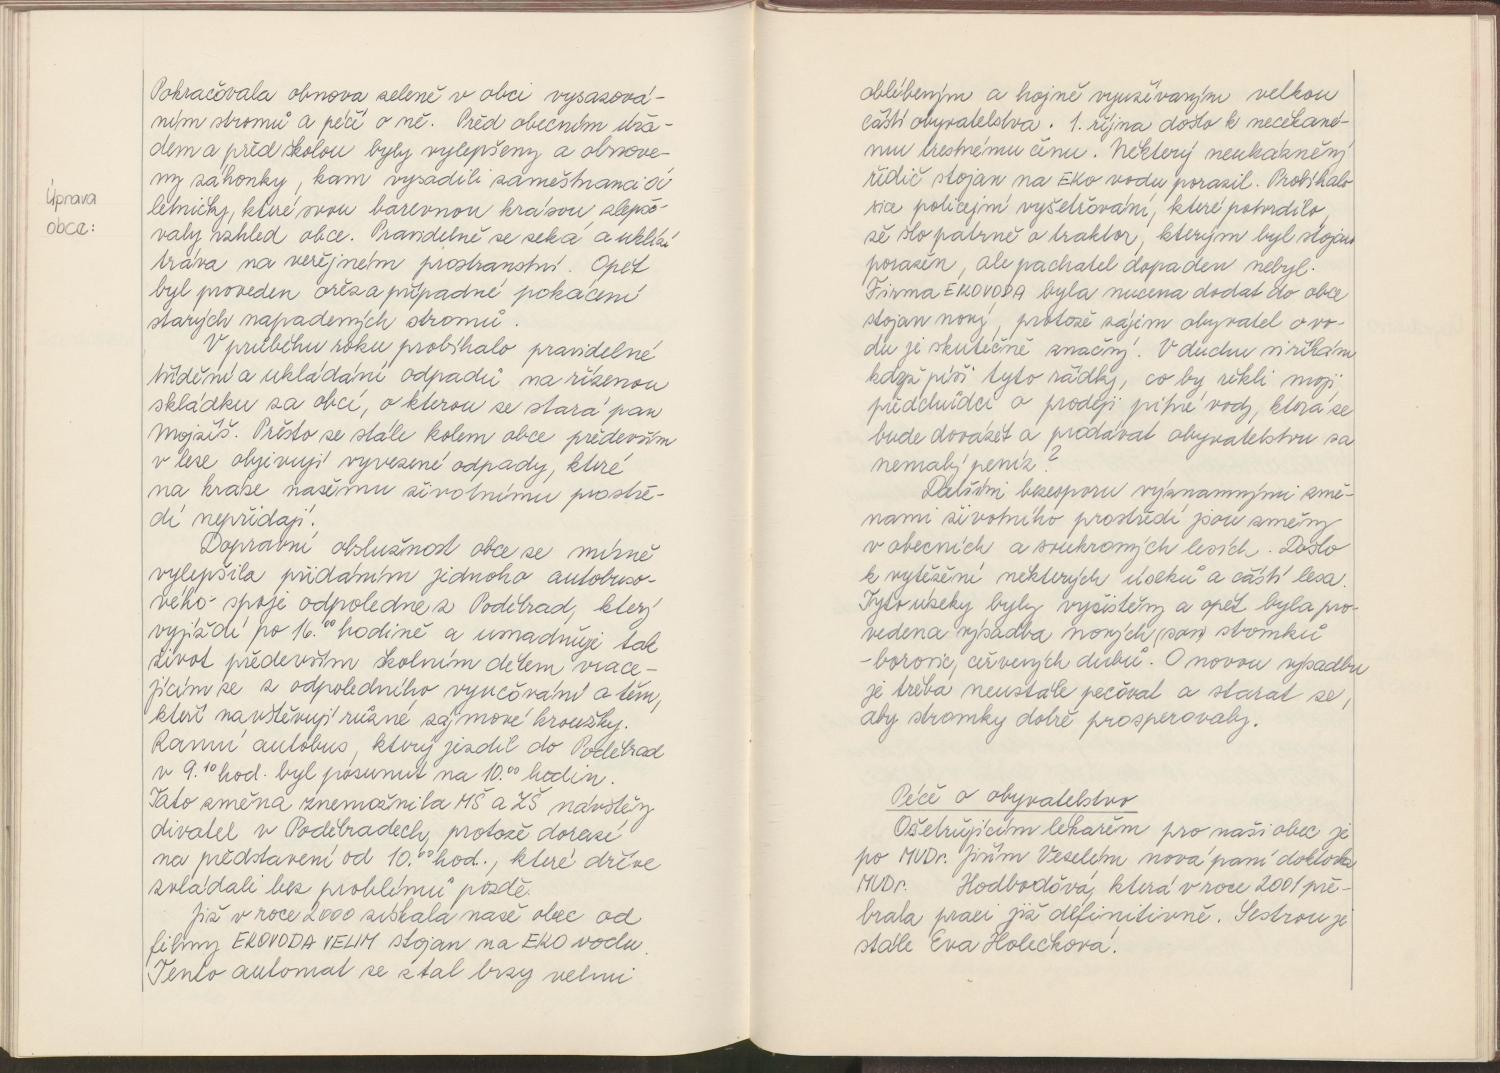 Úprava
obce:
Pokračovala obnova zeleně v obci vysazová-
ním stromů a péčí o ně. Před obecním úřa-
dem a před školou byly vylepšeny a obnove-
ny záhonky, kam vysadili zaměstnanci OÚ
letničky, které svou barevnou krásou zlepšo-
valy vzhled obce. Pravidelně se seká a uklízí
tráva na veřejném prostranství. Opět
byl proveden ořez a případné pokácení
starých napadených stromů.
V průběhu roku probíhalo pravidelné
třídění a ukládání odpadů na řízenou
skládku za obcí, o kterou se stará pan
Mojžíš. Přesto se stále kolem obce především
v lese objevují vyvezené odpady, které
na kráse našemu životnímu prostře-
dí nepřidají.
Dopravní obslužnost obce se mírně
vylepšila přidáním jednoho autobuso-
vého spoje odpoledne z Poděbrad, který
vyjíždí po 16.00 hodině a usnadňuje tak
život především školním dětem vrace-
jícím se z odpoledního vyučování a těm,
kteří navštěvují různé zájmové kroužky.
Ranní autobus, který jezdil do Poděbrad
v 9.10 hod. byl posunut na 10.00 hodin.
Tato změna znemožnila MŠ a ZŠ návštěvy
divadel v Poděbradech, protože dorazí
na představení od 10.00 hod., které dříve
zvládali bez problémů pozdě.
Již v roce 2000 získala naše obec od
firmy EKOVODA VELIM stojan na EKO vodu.
Tento automat se stal brzy velmi
oblíbeným a hojně využívaným velkou
částí obyvatelstva. 1. října došlo k nečekané-
mu trestnému činu. Některý neukázněný
řidič stojan na EKO vodu porazil. Probíhalo
sice policejní vyšetřování, které potvrdilo,
že šlo patrně o traktor, kterým byl stojan
poražen, ale pachatel dopaden nebyl.
Firma EKOVODA byla nucena dodat do obce
stojan nový, protože zájem obyvatel o vo-
du je skutečně značný. V duchu si říkám
když píši tyto řádky, co by řekli moji
předchůdci o prodeji pitné vody, která se
bude dovážet a prodávat obyvatelstvu za
nemalý peníz?
Dalšími bezesporu významnými změ-
nami životního prostředí jsou změny
v obecních a soukromých lesích. Došlo
k vytěžení některých úseků a částí lesa.
Tyto úseky byly vyčištěny a opět byla pro-
vedena výsadba nových stromků
- borovic, červených dubů. O novou výsadbu
je třeba neustále pečovat a starat se,
aby stromky dobře prosperovaly.
Péče o obyvatelstvo
Ošetřujícím lékařem pro naši obec je
po MUDr. Jiřím Veselém nová paní doktorka
MUDr. Hodboďová, která v roce 2001 pře-
brala praxi již definitivně. Sestrou je
stále Eva Holechová.